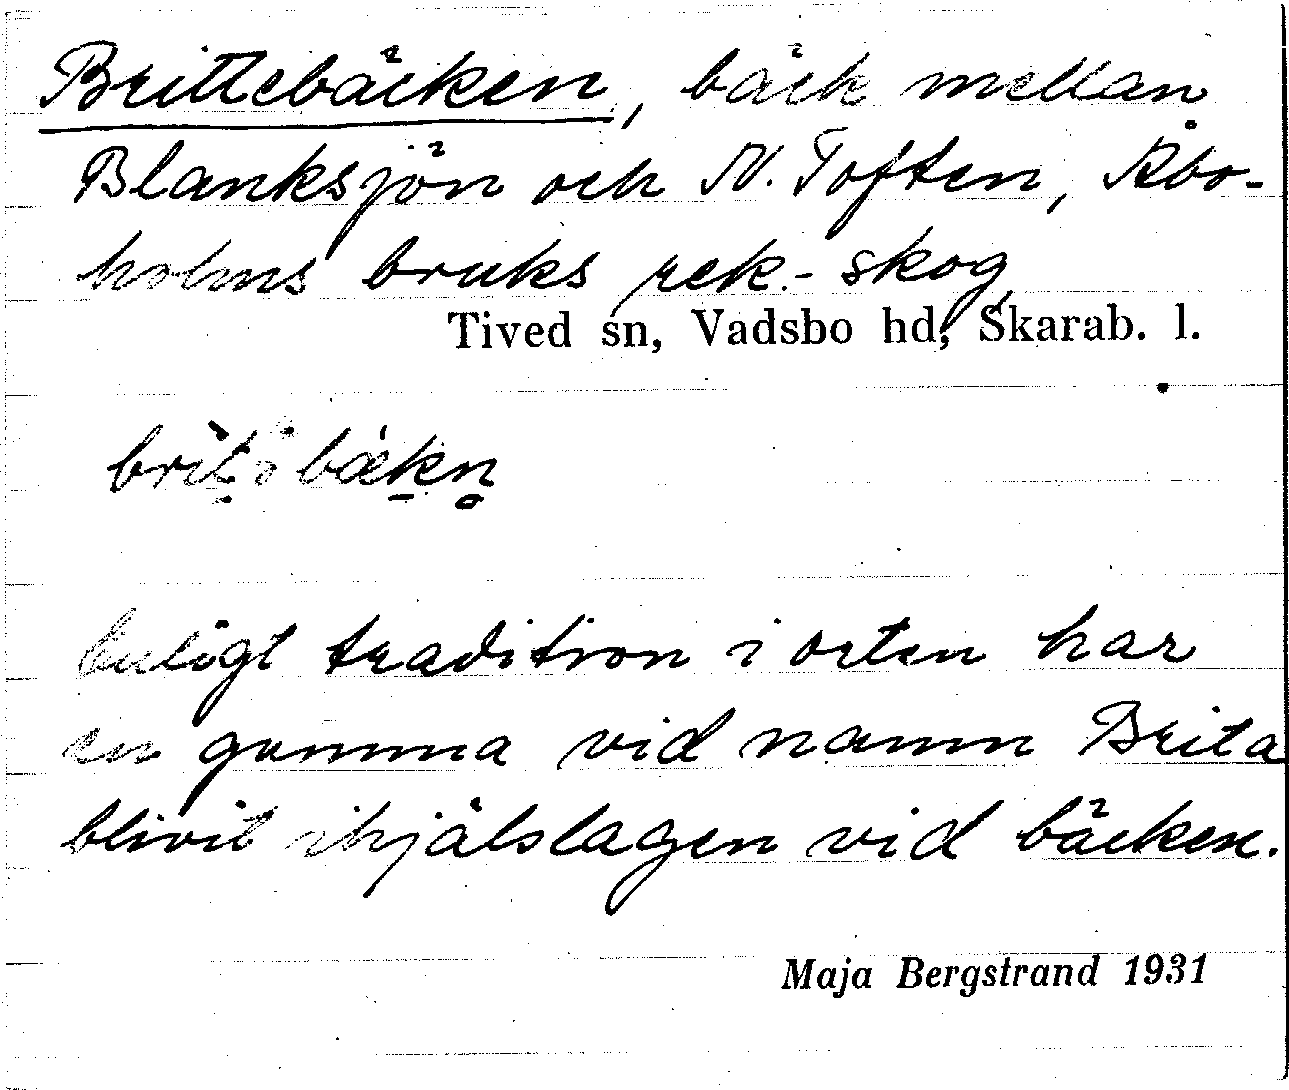 Brittebäcken, bäck mellan
Blanksjön och N. Toften, Åbo-
holms bruks rek.-skog
Tived sn, Vadsbo hd, Skarab. l.
enligt tradition i orten har
en gumma vid namn Brita
blivit ihjälslagen vid bäcken.
Maja Bergstrand 1931